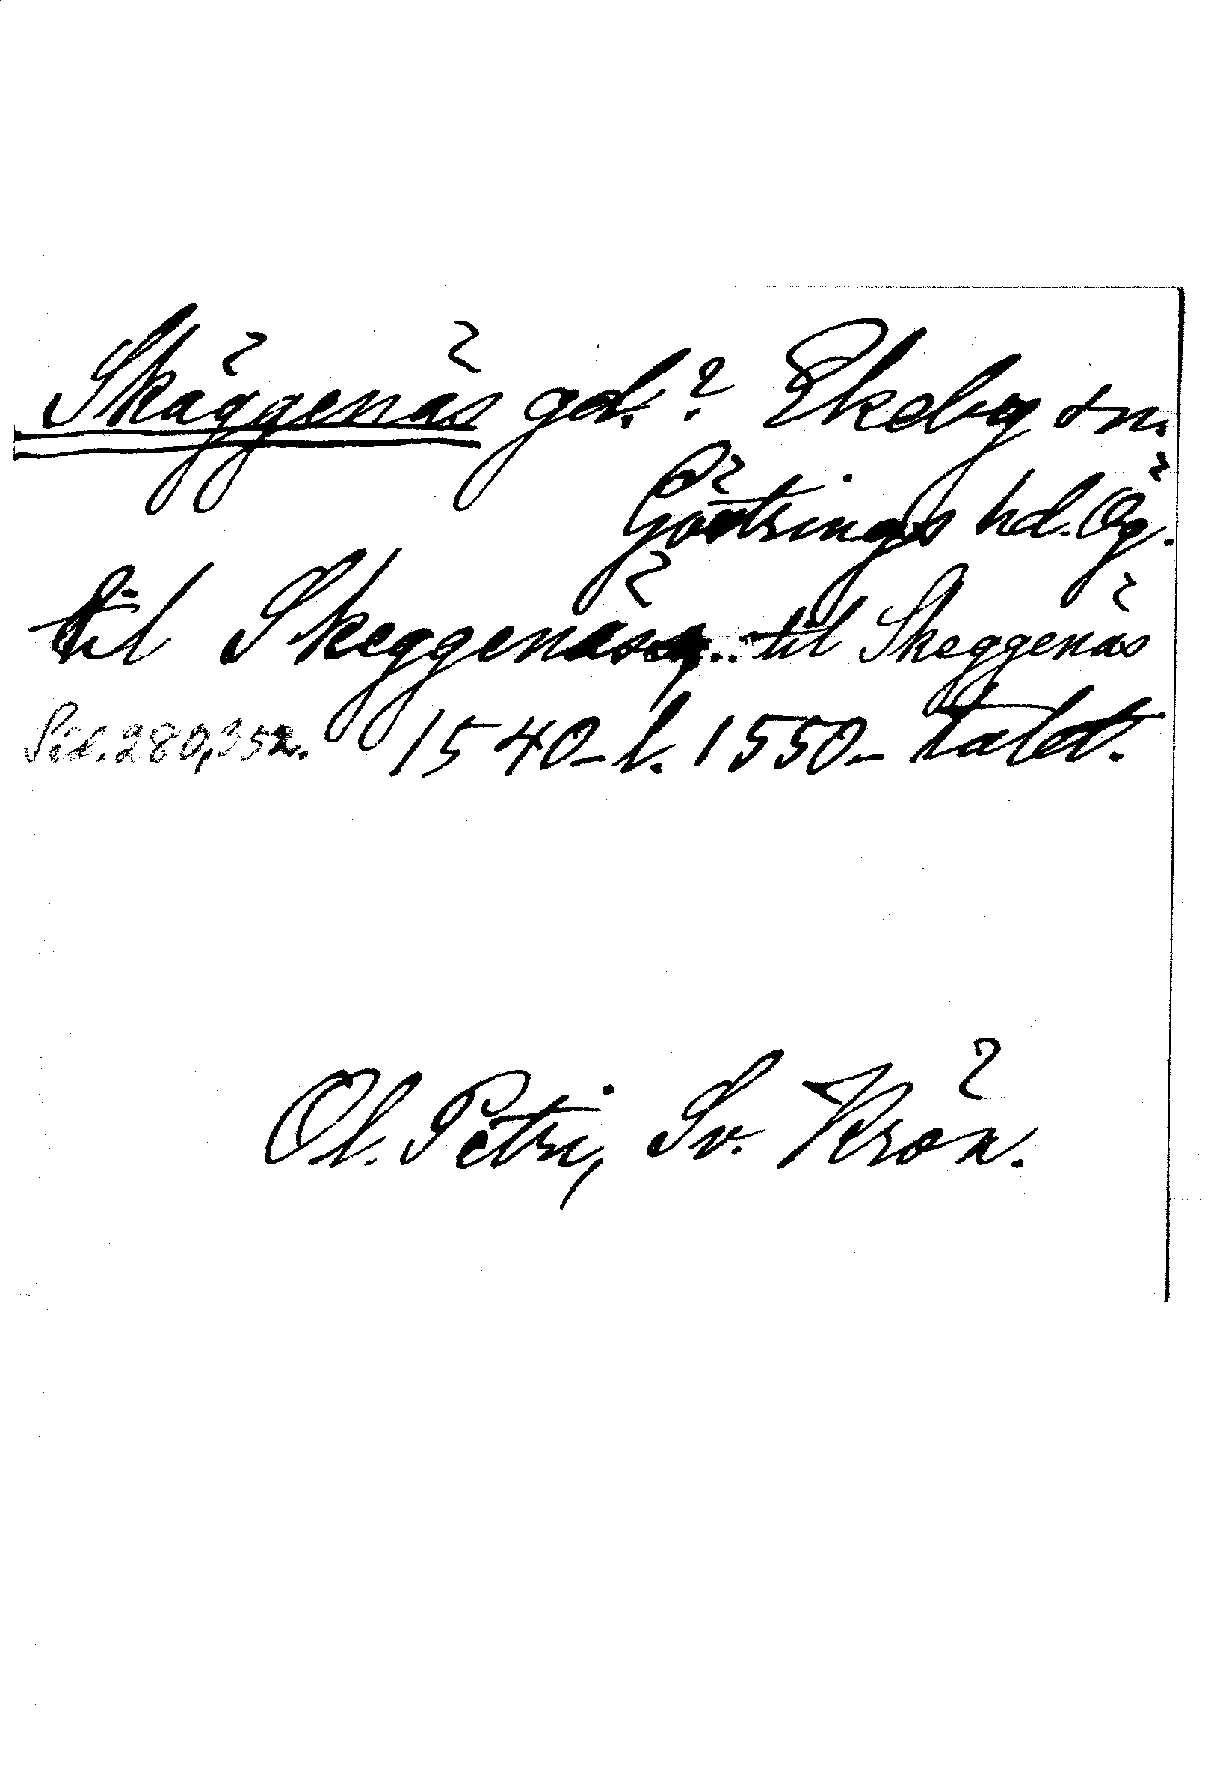 Skäggenäs gd.? Ekeby sn.
Göstrings hd. Ög.
til Skeggenäs .. til Skeggenäs
Sid. 280, 352. 1540- l. 1550-talet.
Ol. Petri, Sv. Krön.